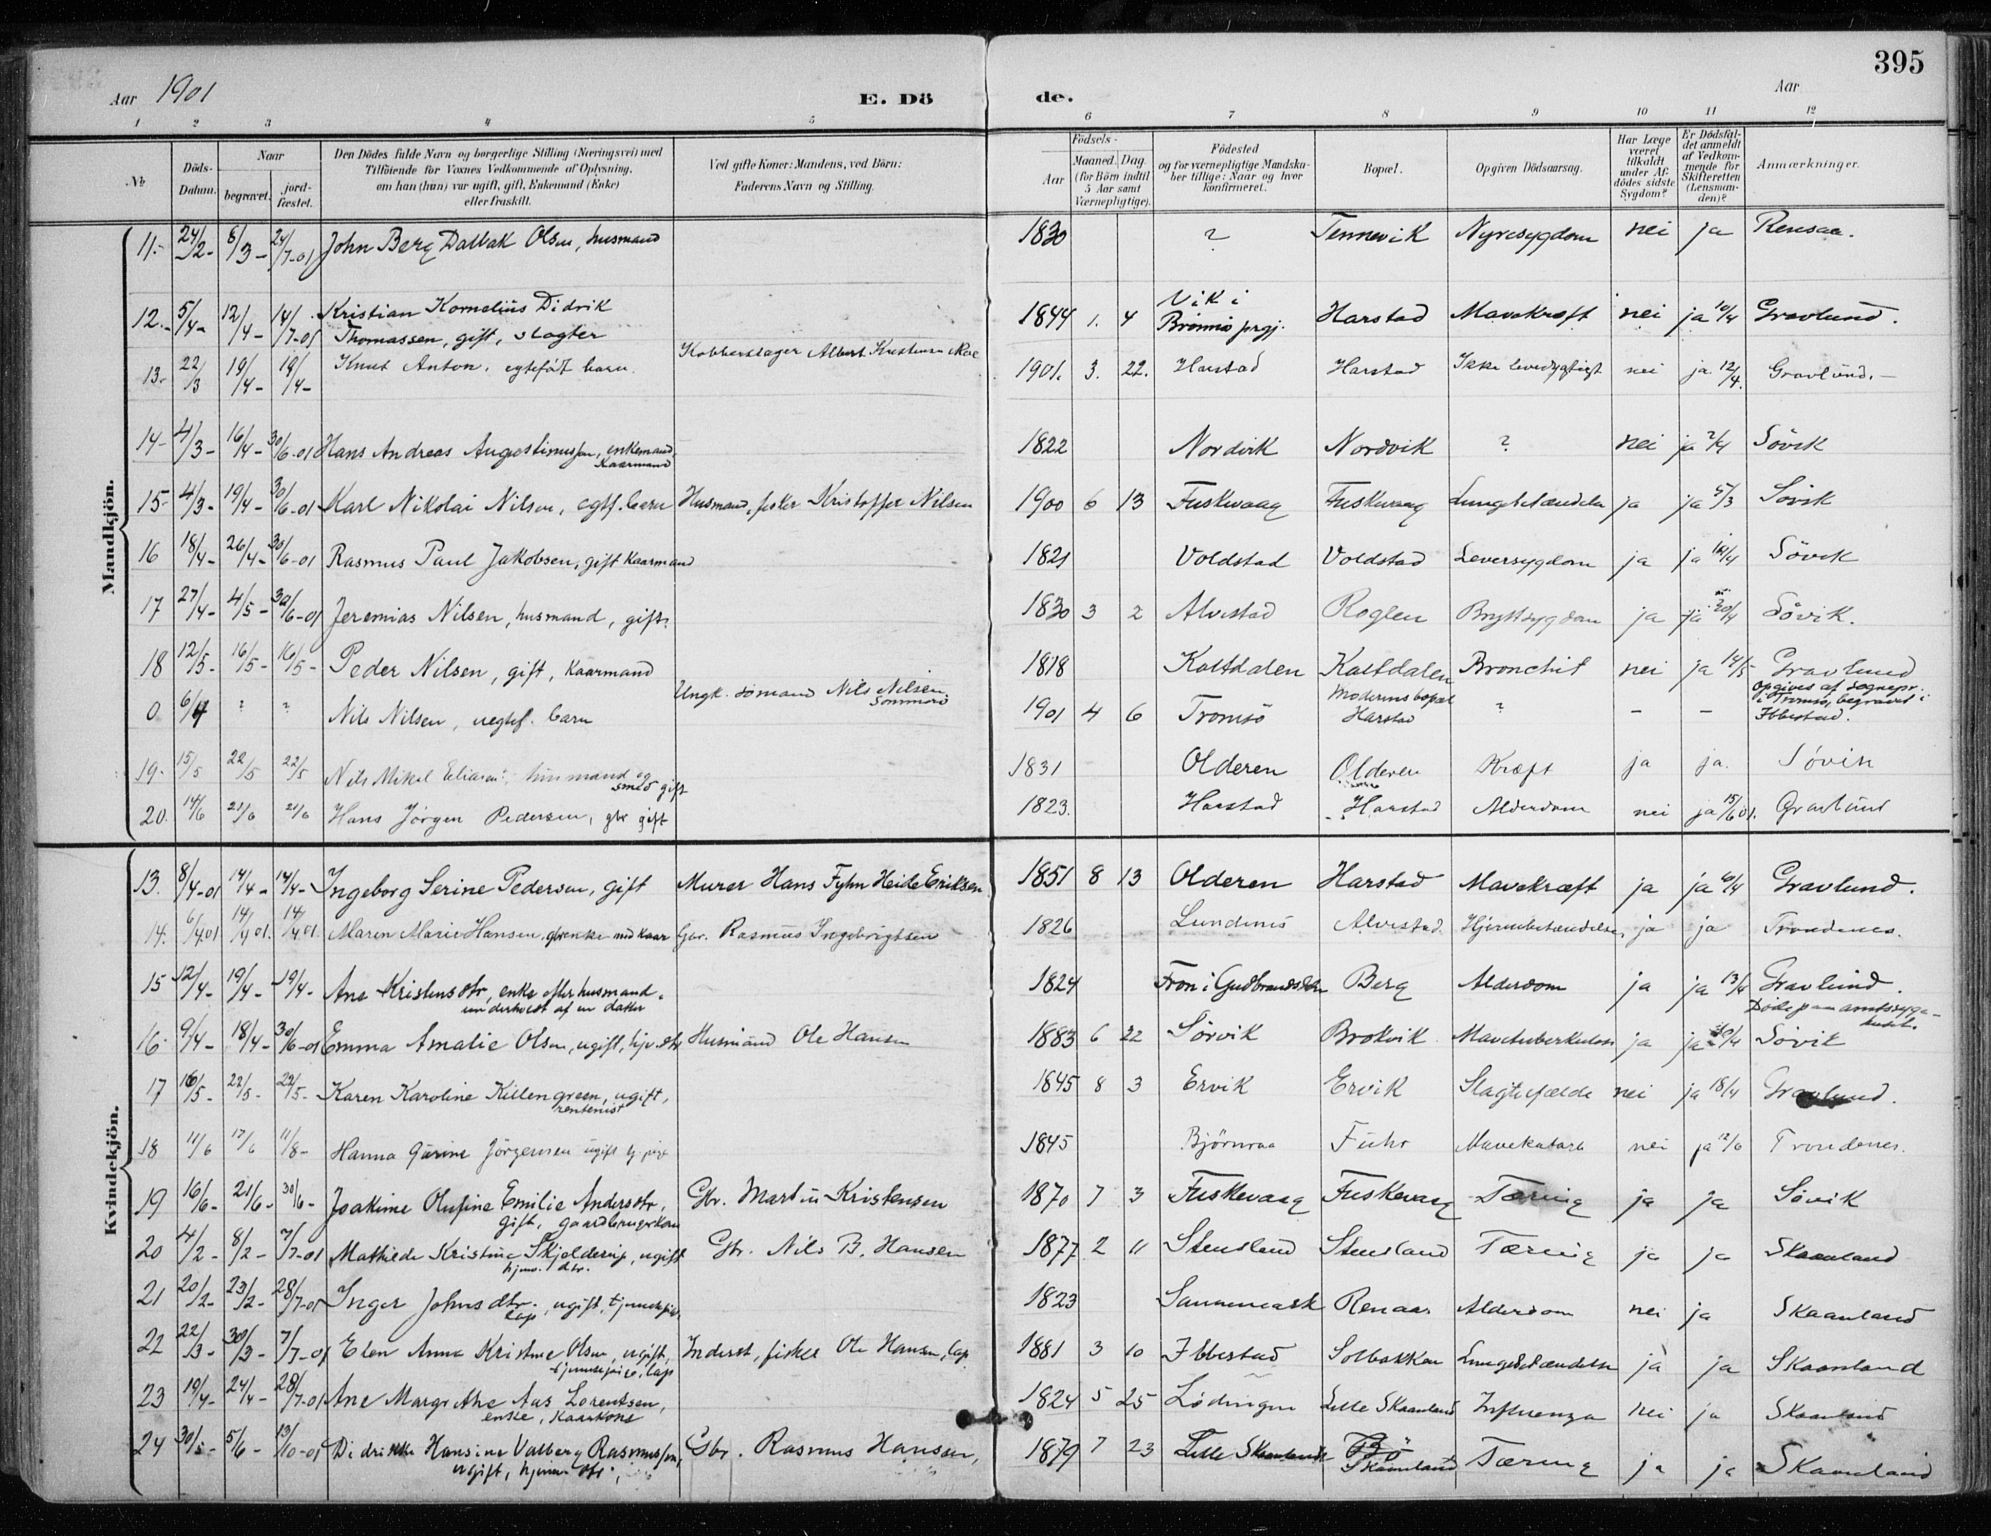 395
Aar 1901
E. Dö de.
Aar
1 2 3 4 5 6 7 8 9 10 11 12
No
Döds-Datum.
Naar
begravet.
jord-fæstet.
Den Dödes fulde Navn og borgerlige Stilling (Næringsvei) med
Tilföiende for Voxnes Vedkommende af Oplysning,
om han (hun) var ugift, gift, Enkemand (Enke)
eller fraskilt.
Ved gifte Koner: Mandens, ved Börn:
Faderens Navn og Stilling.
Födsels-
Aar
Maaned. Dag.
(for Börn indtil
5 Aar samt
Værnepligtige).
Födested
og for værnepligtige Mandska-
ber tillige: Naar og hvor
konfirmeret.
Bopæl.
Opgiven Dödsaarsag.
Har Læge
været
tilkaldt
under Af-
dödes sidste
Sygdom?
Er Dödsfal-
det anmeldt
af Vedkom-
mende for
Skifteretten
(Lensman-
den)?
Anmærkninger.
Mandkjön.
11.- 24/2- 8/3- 24/7-01 John Berg Dalbak Olsen, husmand 1830 ? Tennevik Nyresygdom nei ja Rensaa.
12.- 5/4- 12/4- 14/7-01 Kristian Kornelius Didrik
Thomassen, gift, slagter 1844 1. 4 Vik i
Brønnø prgj. Harstad Mavekræft nei ja 10/4 Gravlund.
13.- 22/3 19/4- 19/4- Knut Anton. egtefødt barn. Kobberslager Albert Kristensen Moe 1901. 3. 22. Harstad Harstad Ikke levedygtigt nei ja 12/4. Gravlund.-
14- 4/3- 16/4- 30/6-01 Hans Andreas Augustinussen, enkemand,
Kaarmand 1822 Nordvik Nordvik ? nei ja 2/4 Søvik
15- 4/3- 19/4- 30/6-01 Karl Nikolai Nilsen, egtf. barn Husmand, fisker Kristoffer Nilsen 1900 6 13 Fuskevaag Fuskevaag Lungebetændelse ja ja 5/3 Søvik
16 18/4- 26/4- 30/6-01 Rasmus Paul Jakobsen, gift kaarmand 1821 Voldstad Voldstad Leversygdom ja ja Søvik
17 27/4- 4/5- 30/6-01 Jeremias Nilsen, husmand, gift. 1830 3 2 Alvestad Roglen Brystsygdom ja ja 30/4 Søvik.
18 12/5- 16/5- 16/5- Peder Nilsen, gift, kaarmand 1818 Kaltdalen Kaltdalen Bronchit nei ja 14/5 Gravlund
0 6/4 ? ? Nils Nilsen, uegtef. barn Ungk. sømand Nils Nilsen. 1901 4 6 Tromsø Moderens bopæl
Harstad ? - - Opgives af sognepr.
i Tromsø, begravet i
Ibbestad.
19- 15/5 22/5 22/5 Nils Mikal Eliasen, husmand og
smed gift 1831 Olderen Olderen Kræft ja ja. Søvik
20. 14/6 21/6 21/6 Hans Jørgen Pedersen, gbr gift 1823. Harstad Harstad Alderdom nei ja 15/6 01. Gravlund
Kvindekjön.
13. 8/4-01 14/4- 14/4- Ingeborg Serine Pedersen, gift Murer Hans Fyhn Heide Eriksen 1851 8 13 Olderen Harstad Mavekræft ja ja Gravlund.
14. 6/4 01 14/4 01. 14/4 01. Maren Marie Hansen, gbrenke med kaar Gbr. Rasmus Ingebrigtsen 1826 Lundenes Alvestad. Hjernebetændelse, ja ja Trondenes.
15 12/4- 19/4- 19/4- Ane Kristensdtr, enke efter husmand.
underholdt af en datter 1824 Fron i Gudbrandsdalen Berg Alderdom ja ja 13/4 Gravlund.
16- 9/4- 18/4- 30/6-01 Emma Amalie Olsen, ugift, hjv. dtr Husmand Ole Hansen 1883 6 22 Sørvik Brokvik Mavetuberkulose ja ja 30/4 Døde paa amtssyge-
huset.
Søvik
17 16/5- 22/5- 22/5- Karen Karoline Killengreen, ugift,
rentenist 1845 8 3 Ervik Ervik Slagtilfælde nei ja 18/4 Gravlund.
18 11/6 17/6 11/8- Hanna Gurine Jörgensen ugift tj. pige 1845 Bjørnraa Fuhr Mavekatarh nei ja 12/6 Trondenes.
19 16/6- 21/6- 30/6- Joakime Olufine Emilie Andersdtr,
gift, gaardbrugerkone Gbr. Martin Kristensen 1870 7 3 Fuskevaag Fuskevaag Tæring ja ja Søvik
20 4/2- 8/2- 7/7-01 Mathilde Kristine Skjelderup, ugift
hjmv. dtr. Gbr. Nils B. Hansen 1877 2 11 Stensland Stensland Tæring ja ja Skaanland
21 20/2- 23/2- 28/7-01 Inger Johnsdtr., ugift, tjenestepige,
Lap 1823 Sannemark Renaas Alderdom nei ja Skaanland
22 22/3- 30/3- 7/7-01 Elen Anna Kristine Olsen, ugift,
tjenestepige, Lap Inderst, fisker Ole Hansen, Lap 1881 3 10 Ibbestad Solbakken Lungebetændelse ja ja Skaanland
23 19/4- 24/4- 28/7-01 Ane Margrethe Aas Lorentsen,
enke, Kaarkone 1824 5 25 Lødingen Lille Skaanland Influenza nei ja Skaanland
24 30/5- 5/6- 13/10-01 Didrikke Hansine Valberg Rasmussen,
ugift, hjemv. dtr. Gbr. Rasmus Hansen, 1879 7 23 Lille Skaanland Skaanland Tæring ja ja Skaanland